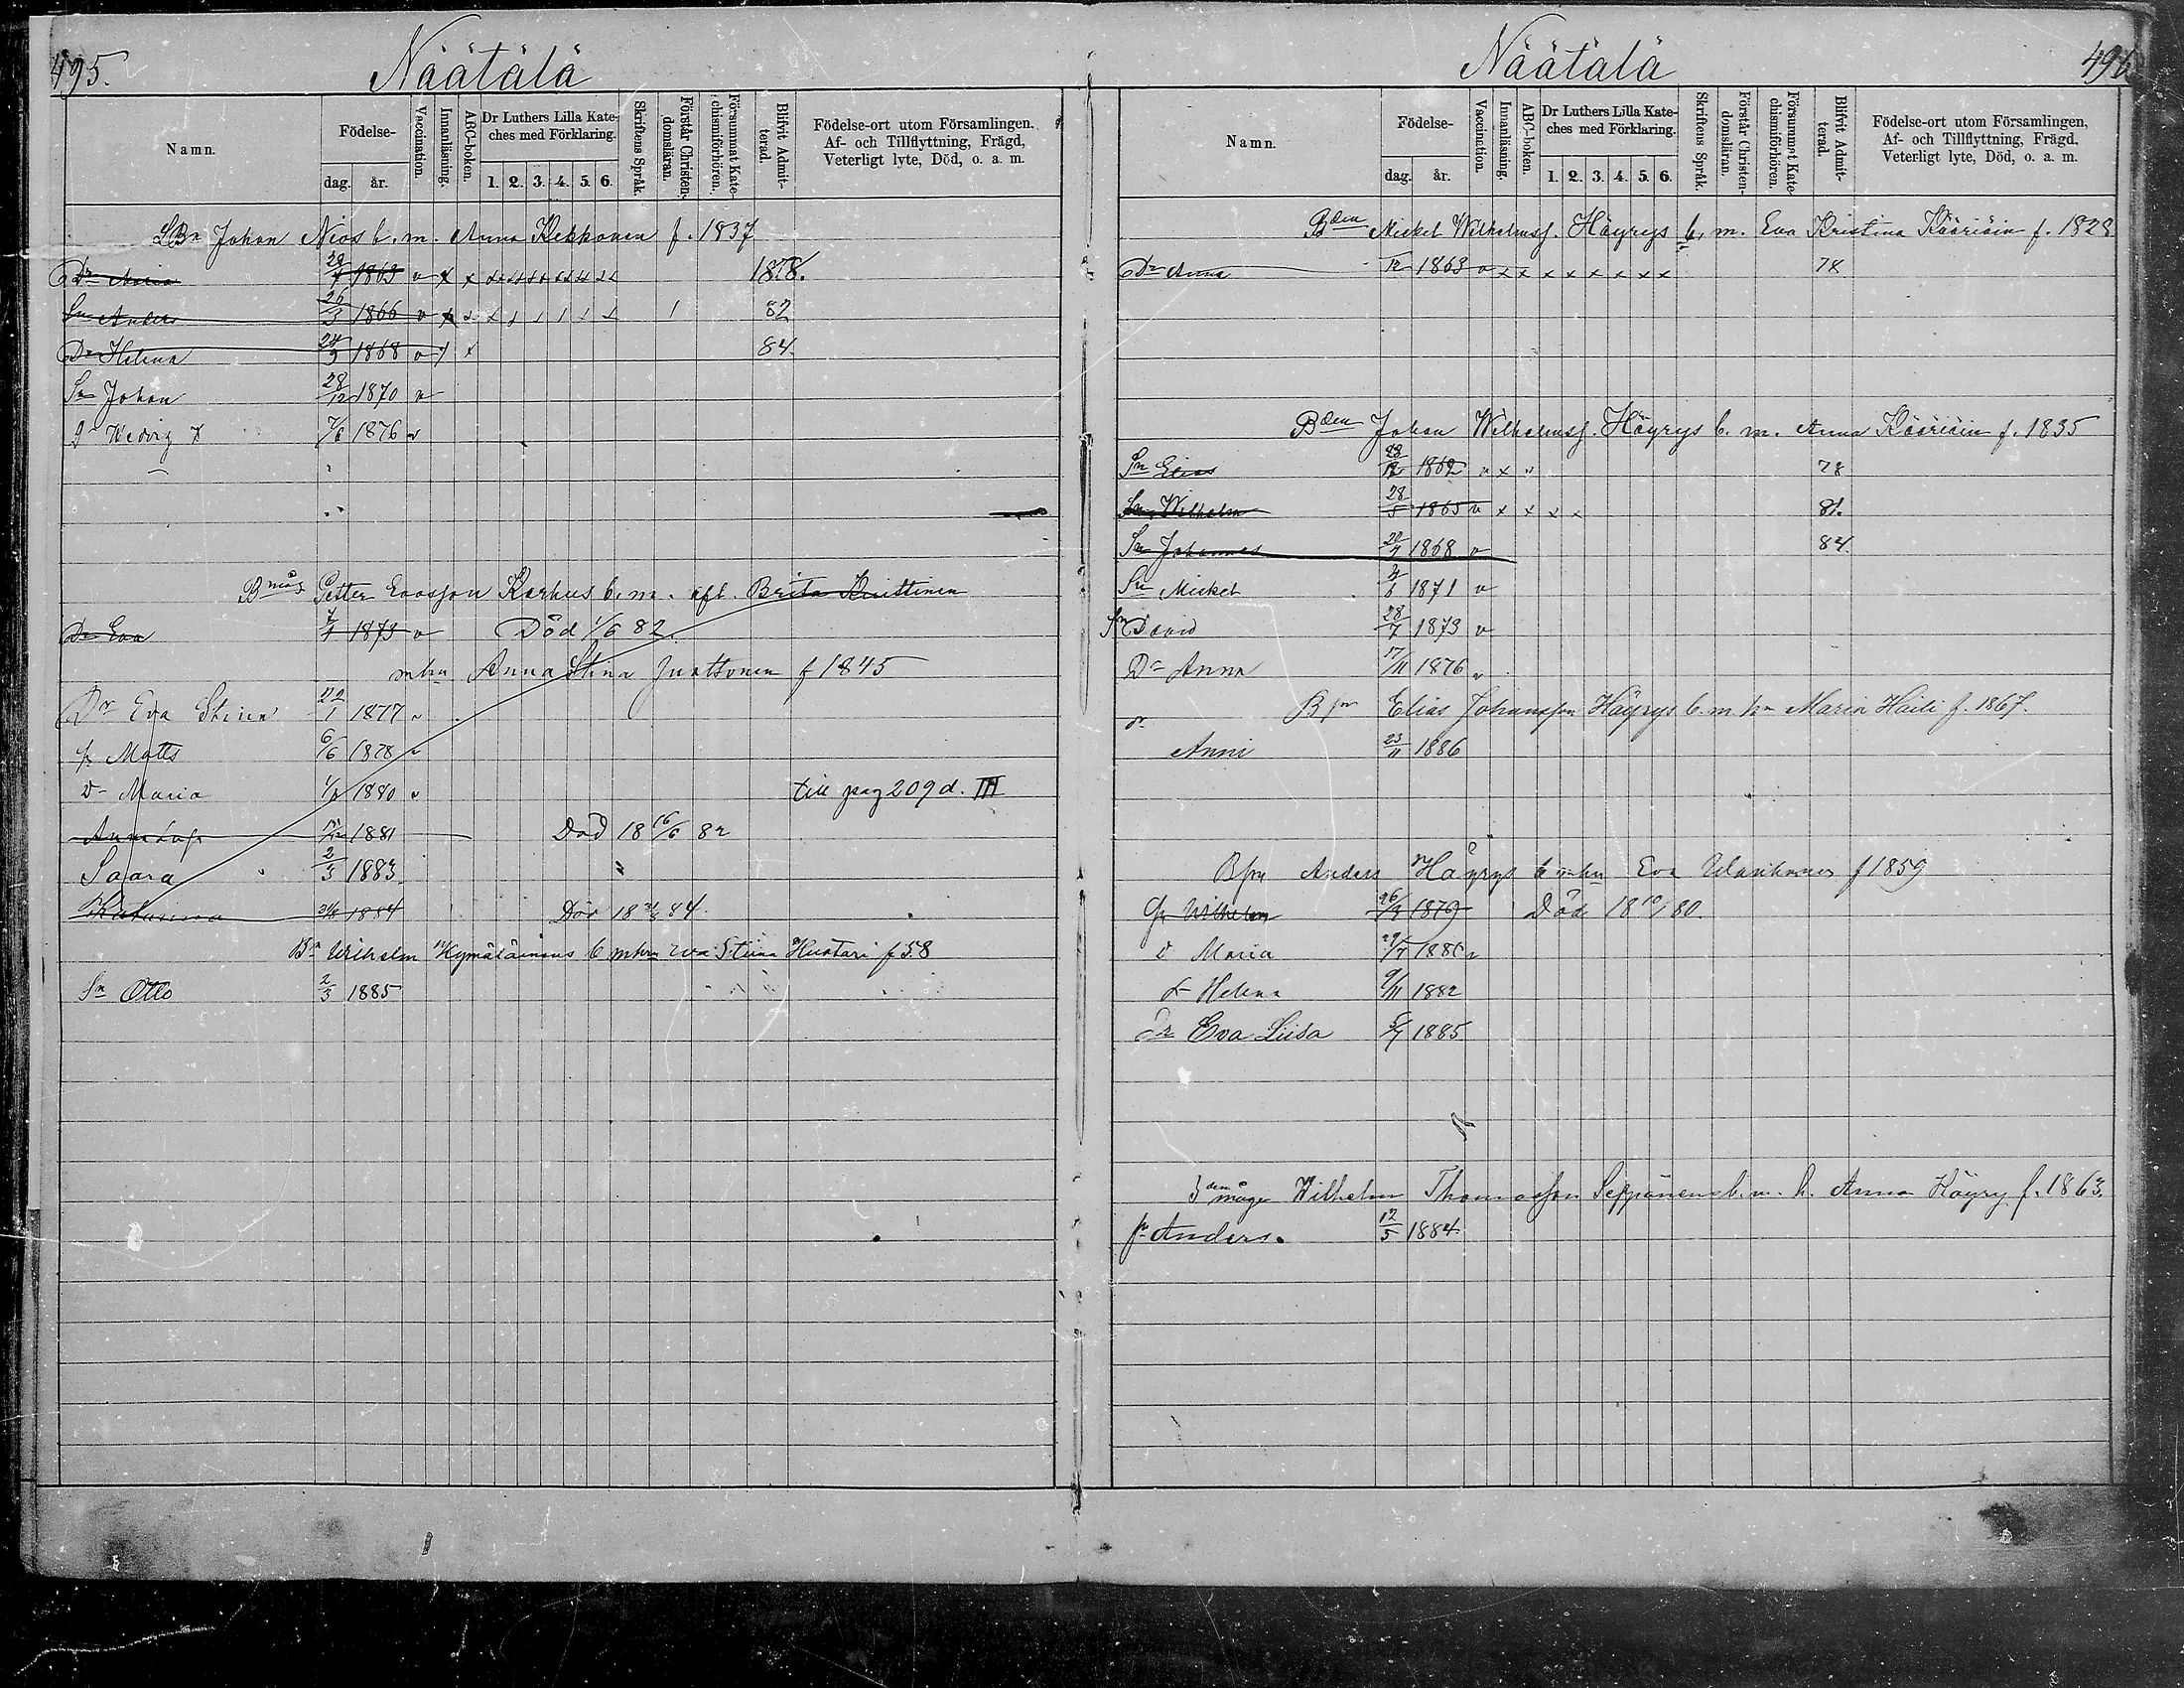 495.
Näätälä
Namn.
Födelse-
dag. år.
Vaccination.
Innanläsning.
ABC-boken.
Dr Luthers Lilla Kate-
ches med Förklaring.
1. 2. 3. 4. 5. 6.
Skriftens Språk.
Förstår Christen-
domsläran.
Försummat Kate-
chismiförhören.
Blifvit Admit-
terad.
Födelse-ort utom Församlingen,
Af- och Tillflyttning, Frägd,
Veterligt lyte, Död, o. a. m.
Johan Nios b. m. Anna Kekkonen f. 1837
Dr Maria 1863 v x x 1878.
Sn Anders 26/3 1866 v 82
Dr Helena 24/9 1868 v 84.
Sn Johan 28/12 1870 v
Dr Hedvig 1876 v
Bmåg Petter Evasson Karhus b. m. afl. Brita
Dr Eva 1873 v Död 1/6 82.
mhu Anna Stina f 1845
Dr Eva Stina 22/1 1877 v
Matts 6/6 1878 v
Dr Maria 1880 v till pag 209 d. III
1881 Död 18 16/6 82
Saara 2/3 1883
Katarina 1884 Död 18 84.
Bn Wilhelm Kymäläinens b mhu Eva Stina Hustari f 58
Sn Otto 2/3 1885
Näätälä
496
Namn.
Födelse-
dag. år.
Vaccination.
Innanläsning.
ABC-boken.
Dr Luthers Lilla Kate-
ches med Förklaring.
1. 2. 3. 4. 5. 6.
Skriftens Språk.
Förstår Christen-
domsläran.
Försummat Kate-
chismiförhören.
Blifvit Admit-
terad.
Födelse-ort utom Församlingen,
Af- och Tillflyttning, Frägd,
Veterligt lyte, Död, o. a. m.
Bden Mickel Wilhelmss. Häyrys b. m. Eva Kristina Kääriäin f. 1828
Dr Anna 1863 v x x x x x x x x 78
Bden Johan Wilhelmss. Häyrys b. m. Anna Kääriäin f. 1835
Sn Elias 28/12 1862 v x 78
Sn Wilhelm 28/5 1865 v x x x x 81.
Sn Johannes 1868 v 84.
Sn Mickel 1871 v
Sn David 28/7 1873 v
Dr Anna 17/11 1876 v
Elias Johansson Häyrys b. m. hu Maria Haili f. 1867.
dr Anni 23/11 1886
Anders Häyrys b mhu Eva f 1859
Wilhelm 26/9 1879 Död 18 80.
d Maria 1880 v
dr Helena 9/11 1882
Dr Eva Liisa 1885
måge Wilhelm Thomasson Seppänens b. m. h. Anna Häyry f. 1863.
Anders. 12/5 1884.